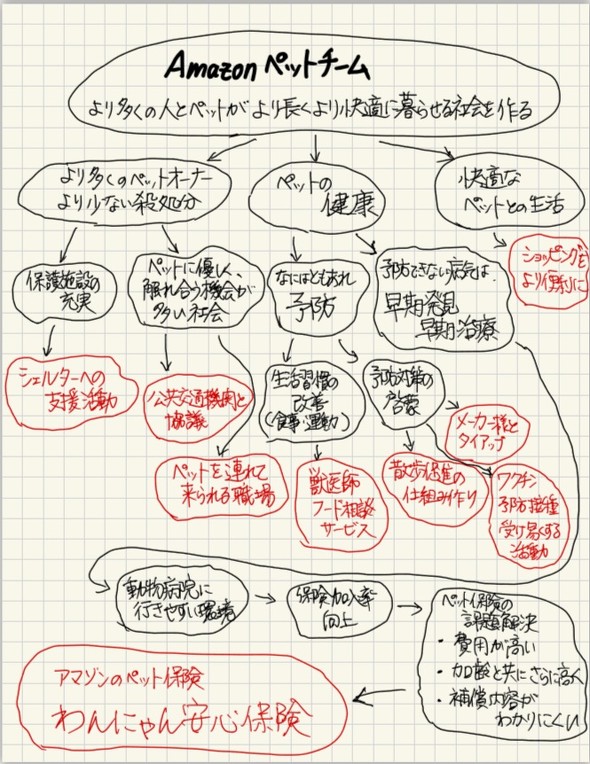 Amazon ペットチーム
より多くの人とペットがより長くより快適に暮らせる社会を作る
より多くのペットオーナー
より少ない殺処分
ペットの
健康
快適な
ペットとの生活
保護施設の
充実
ペットに優しく、
触れ合う機会が
多い社会
なにはともあれ
予防
予防できない病気は、
早期発見
早期治療
ショッピングを
より便利に
シェルターへの
支援活動
公共交通機関と
協議
生活習慣の
改善
(食事・運動)
予防対策の
啓蒙
メーカー様と
タイアップ
ペットを連れて
来られる職場
獣医師
フード相談
サービス
散歩促進の
仕組み作り
ワクチン
予防接種
受け易くする
活動
動物病院に
行きやすい環境
保険加入率
向上
ペット保険の
課題解決
・費用が高い
・加齢と共にさらに高く
・補償内容が
わかりにくい
アマゾンのペット保険
わんにゃん安心保険